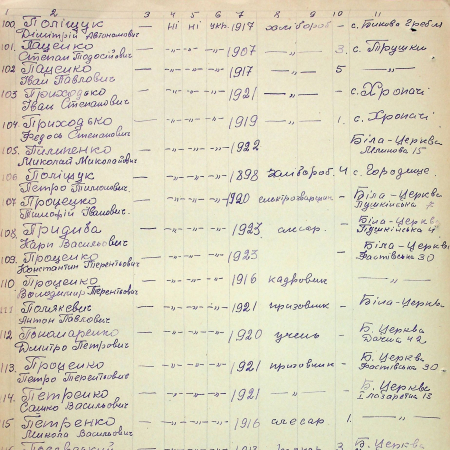 1 2. 3 4 5 6 7 8 9 10 11
100 Поліщук — ні ні укр. 1917 хлібороб — с. Бикова Гребля
Дмитрій Автономович
101. Паценко — -"- -"- -"- 1907 —"— 3. с. Трушки
Степан Тодосійович
102 Паценко — -"- -"- -"- 1917 —"— 5 —"—
Іван Павлович
103 Приходько — -"- -"- -"- 1921 —"— — с. Храпачі
Іван Степанович
104 Приходько — -"- -"- -"- 1919 —"— 1. с. Храпачі
Федось Степанович
105. Пилипенко — -"- -"- -"- 1922 Біла-Церква
Миколай Миколайович 15
106 Поліщук — -"- -"- -"- 1898 хлібороб. 4 с. Городище
Петро Пилипович.
107 Проценко — -"- -"- -"- 1920 електрозварщик — Біла-Церква
Тимофій Іванович. Пушкінська
108 Придиба — -"- -"- -"- 1923 слесар. — Біла-Церква
Карп Васильович Пушкінська 4
109. Проценко — -"- -"- -"- 1923 — Біла-Церква
Константин Терентьович Фастівська 30
110 Проценко — -"- -"- -"- 1916 кадрович — —"—
Володимир Терентьович
111 — -"- -"- -"- 1921 призовник — Біла-Церква
Антон Павлович
112 Пономаренко — -"- -"- -"- 1920 учень — Б. Церква
Дмитро Петрович 42
113. Проценко — -"- -"- -"- 1921 призовник — Б. Церква
Петро Терентьович Фастівська 30
114. Петренко — -"- -"- -"- 1921 —"— — Б. Церква
Сашко Васильович 15
15 Петренко — -"- -"- -"- 1916 слесар. 1. —"—
Микола Васильович
Б. Церква